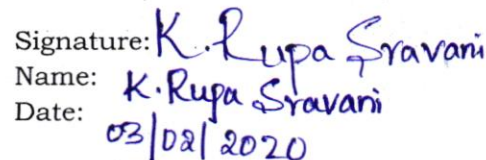 Signature: K. Rupa Sravani
Name: K. Rupa Sravani
Date: 03/02/2020